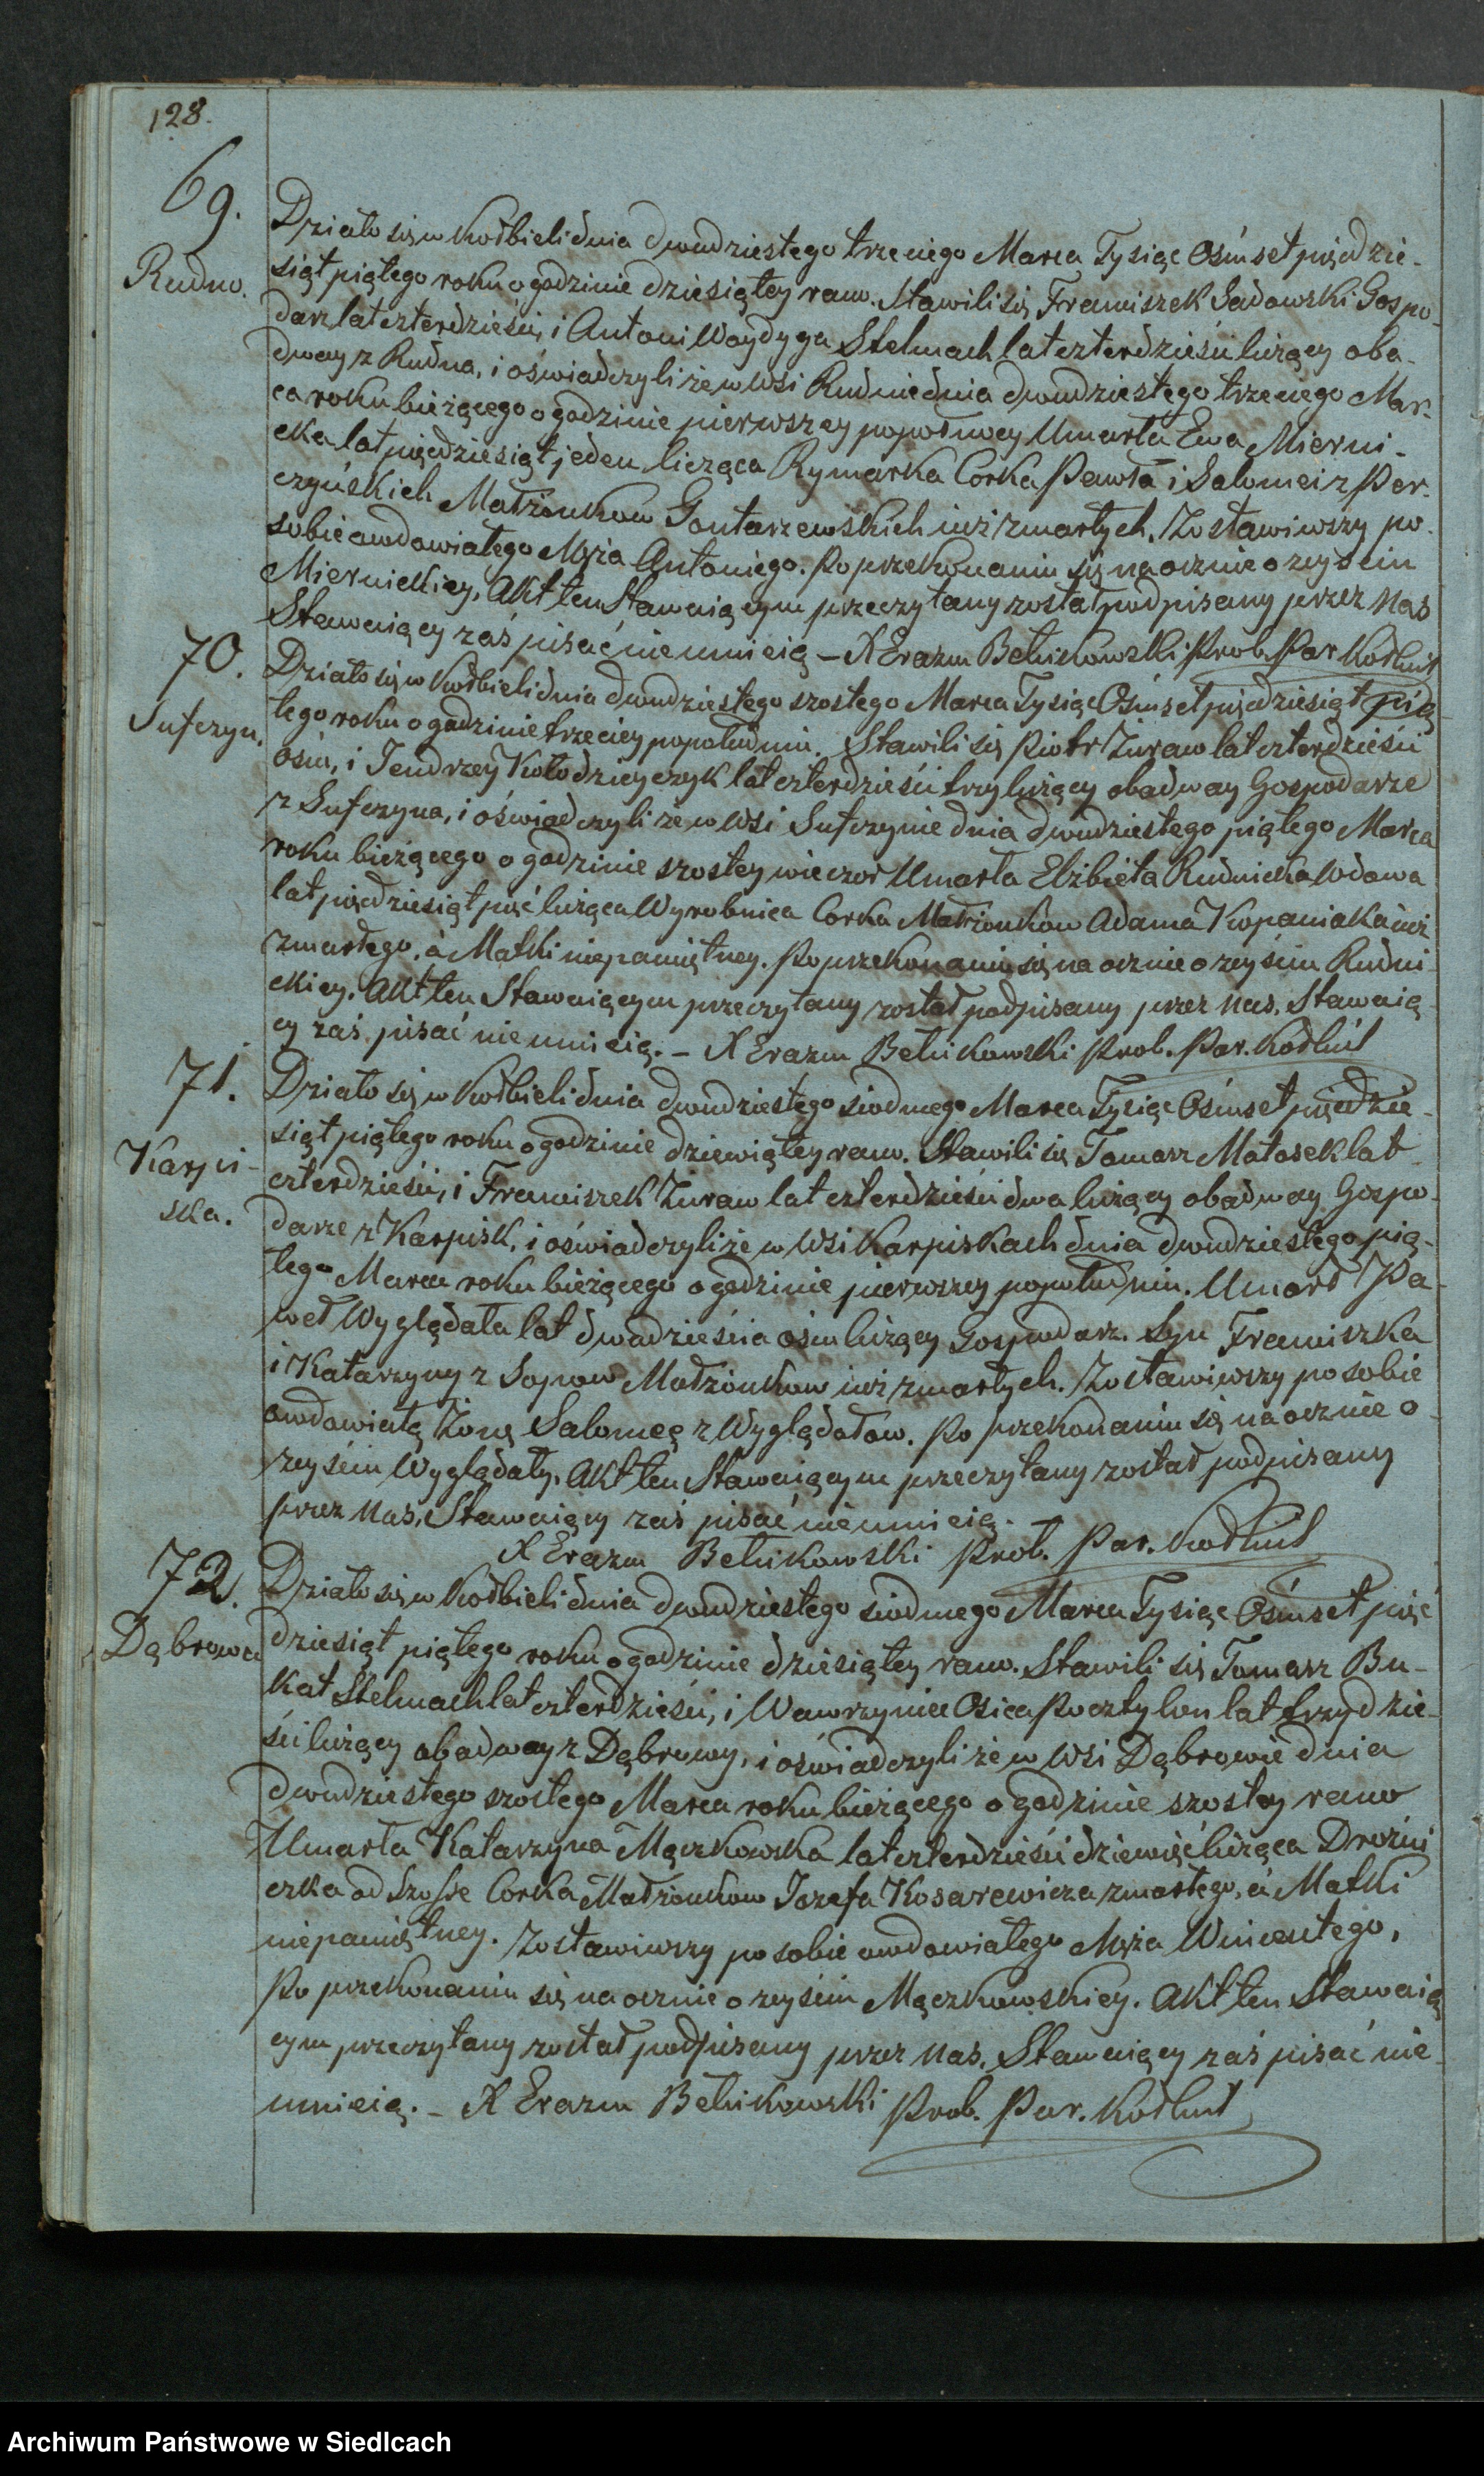 128.
69.
Rudno.
Działo się w Kołbieli dnia dwudziestego trzeciego Marca Tysiąc Ośmset pięćdzie-
siąt piątego roku o godzinie dziesiątey rano. Stawili się Franciszek Sadowski Gospo-
darz lat czterdzieści, i Antoni Woydyga Stelmach lat czterdzieści liczący oba-
dway z Rudna, i oświadczyli że w wsi Rudnie dnia dwudziestego trzeciego Mar-
ca roku bieżącego o godzinie pierwszey popołnocy Umarła Ewa Mierni-
cka lat pięćdziesiąt jeden licząca Rymarka Corka Pawła i Salomei z Per-
czyńskich Małżonkow Gontarzewskich iuż zmarłych. Zostawiwszy po
sobie owdowiałego Męża Antoniego. Po przekonaniu się naocznie o zeyściu
Miernickiey, Akt ten Stawaiącym przeczytany został podpisany przez Nas
Stawaiący zaś pisać nieumieią – X Erazm Betnikowski Prob. Par. Kołbiel
70.
Sufczyn.
Działo się w Kołbieli dnia dwudziestego szostego Marca Tysiąc Ośmset pięćdziesiąt pią
tego roku o godzinie trzeciey popołudniu. Stawili się Piotr Zuraw lat czterdzieści
ośm, i Jendrzey Kołodzieyczyk lat czterdzieści trzy liczący obadway Gospodarze
z Sufczyna, i oświadczyli ze w wsi Sufczynie dnia dwudziestego piątego Marca
roku bieżącego o godzinie szostey wieczor Umarła Elżbieta Rudnicka Wdowa
lat pięćdziesiąt pięć licząca Wyrobnica Corka Małżonków Adama Kopaniaka iuż
zmarłego, a Matki niepamiętney. Po przekonaniu się naocznie o zeyściu Rudni-
ckiey. Akt ten Stawaiącym przeczytany został podpisany przez Nas, Stawaią-
cy zaś pisać nieumieią. – X Erazm Betnikowski Prob. Par. Kołbiel
71.
Karpi-
ska.
Działo się w Kołbieli dnia dwudziestego siodmego Marca Tysiąc Ośmset pięćdzie-
siąt piątego roku o godzinie dziewiątey rano. Stawili się Tomasz Matosek lat
czterdzieści, i Franciszek Zuraw lat czterdzieści dwa liczący obadway Gospo-
darze z Karpisk, i oświadczyli że w wsi Karpiskach dnia dwudziestego pią-
tego Marca roku bieżącego o godzinie pierwszey popołudniu. Umarł Pa-
weł Wyglądała lat dwadzieścia ośm liczący Gospodarz. Syn Franciszka
i Katarzyny z Sopow Małżonkow iuż zmarłych. Zostawiwszy po sobie
owdowiałą Zonę Salomeę z Wyglądałow. Po przekonaniu się naocznie o
zeyściu Wyglądały. Akt ten Stawaiącym przeczytany został podpisany
przez Nas, Stawaiący zaś pisać nieumieią.
X Erazm Betnikowski Prob. Par. Kołbiel
72.
Dąbrowa
Działo się w Kołbieli dnia dwudziestego siodmego Marca Tysiąc Ośmset pięć
dziesiąt piątego roku o godzinie dziesiątey rano. Stawili się Tomasz Bu-
kat Stelmach lat czterdzieści, i Wawrzyniec Osica Pocztylion lat trzydzie-
ści liczący obadway z Dąbrowy, i oświadczyli że w wsi Dąbrowie dnia
dwudziestego szostego Marca roku bieżącego o godzinie szostey rano
Umarła Katarzyna Mączkowska lat czterdzieści dziewięć licząca Drożni
czka od Szosse Corka Małżonkow Jozefa Kosarewicza zmarłego, a Matki
niepamiętney. Zostawiwszy po sobie owdowiałego Męża Wincentego,
Po przekonaniu się naocznie o zeyściu Mączkowskiey. Akt ten Stawaią
cym przeczytany został podpisany przez Nas, Stawaiący zaś pisać nie
umieią. – X Erazm Betnikowski Prob. Par. Kołbiel
Archiwum Państwowe w Siedlcach